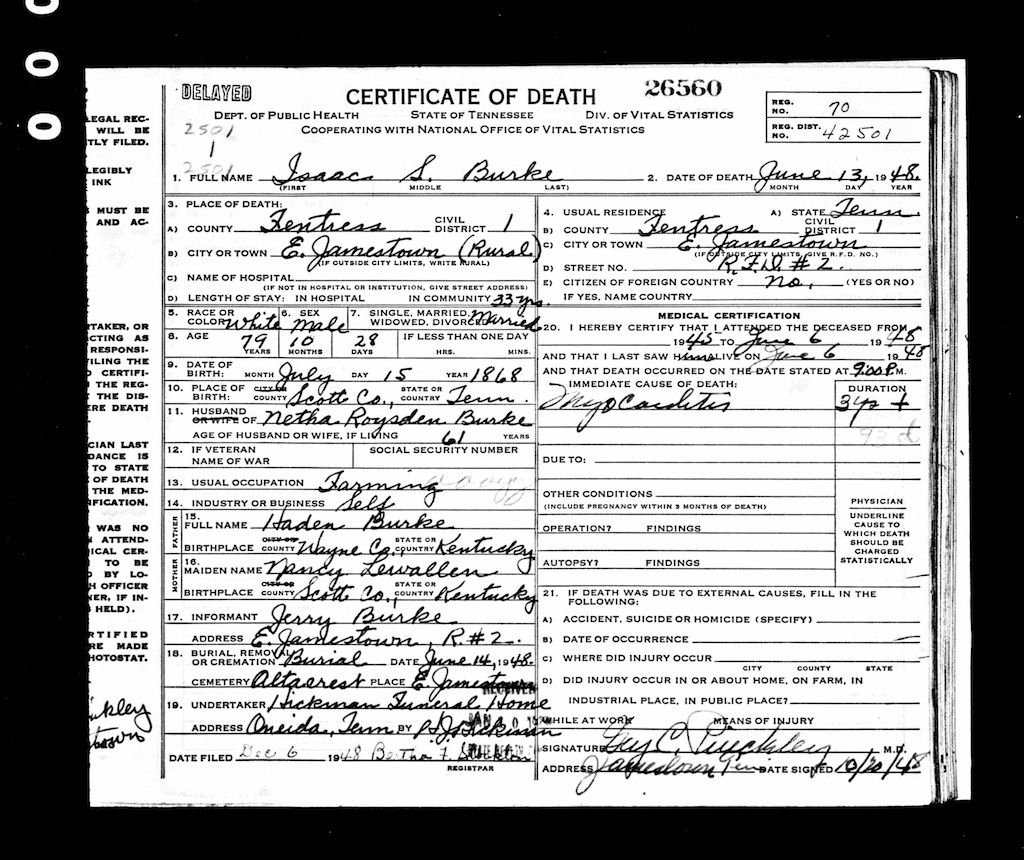 0 0 0
DELAYED
CERTIFICATE OF DEATH 26560
DEPT. OF PUBLIC HEALTH STATE OF TENNESSEE DIV. OF VITAL STATISTICS
COOPERATING WITH NATIONAL OFFICE OF VITAL STATISTICS
REG. NO. 70
REG. DIST. NO. 42501
2501
1
2501
1. FULL NAME Isaac S. Burke 2. DATE OF DEATH June 13, 1948.
(FIRST) MIDDLE LAST) MONTH DAY YEAR
3. PLACE OF DEATH:
A) COUNTY Fentress CIVIL DISTRICT 1
B) CITY OR TOWN E. Jamestown (Rural)
(IF OUTSIDE CITY LIMITS, WRITE RURAL)
C) NAME OF HOSPITAL
(IF NOT IN HOSPITAL OR INSTITUTION, GIVE STREET ADDRESS)
D) LENGTH OF STAY: IN HOSPITAL IN COMMUNITY 33 yrs.
4. USUAL RESIDENCE A) STATE Tenn.
B) COUNTY Fentress CIVIL DISTRICT 1
C) CITY OR TOWN E. Jamestown
(IF OUTSIDE CITY LIMITS, GIVE R.F.D. NO.)
D) STREET NO. R.F.D. #2.
E) CITIZEN OF FOREIGN COUNTRY No, (YES OR NO)
IF YES, NAME COUNTRY
5. RACE OR COLOR White 6. SEX Male 7. SINGLE, MARRIED, WIDOWED, DIVORCED Married
8. AGE 79 YEARS 10 MONTHS 28 DAYS IF LESS THAN ONE DAY HRS. MINS.
9. DATE OF BIRTH: MONTH July DAY 15 YEAR 1868
10. PLACE OF BIRTH: CITY OR COUNTY Scott Co., STATE OR COUNTRY Tenn.
11. HUSBAND OR WIFE OF Netha Roysden Burke
AGE OF HUSBAND OR WIFE, IF LIVING 61 YEARS
12. IF VETERAN NAME OF WAR SOCIAL SECURITY NUMBER
13. USUAL OCCUPATION Farming
14. INDUSTRY OR BUSINESS Self
FATHER
15. FULL NAME Haden Burke
BIRTHPLACE CITY OR COUNTY Wayne Co. STATE OR COUNTRY Kentucky
MOTHER
16. MAIDEN NAME Nancy Lewallen
BIRTHPLACE CITY OR COUNTY Scott Co., STATE OR COUNTRY Kentucky
17. INFORMANT Jerry Burke
ADDRESS E. Jamestown, R#2.
18. BURIAL, REMOVAL OR CREMATION Burial DATE June 14, 1948.
CEMETERY Altacrest PLACE E. Jamestown
RECEIVED
19. UNDERTAKER Hickman Funeral Home
ADDRESS Oneida, Tenn BY Hickman
DATE FILED Dec 6 1948 Bertha F. Stockton
REGISTRAR
MEDICAL CERTIFICATION
20. I HEREBY CERTIFY THAT I ATTENDED THE DECEASED FROM
1945 TO June 6 1948
AND THAT I LAST SAW HIM ALIVE ON June 6 1948
AND THAT DEATH OCCURRED ON THE DATE STATED AT 9:00 P.M.
IMMEDIATE CAUSE OF DEATH: DURATION
Myocarditis 3 yr +
93d
DUE TO:
OTHER CONDITIONS
(INCLUDE PREGNANCY WITHIN 3 MONTHS OF DEATH)
OPERATION? FINDINGS
AUTOPSY? FINDINGS
PHYSICIAN
UNDERLINE
CAUSE TO
WHICH DEATH
SHOULD BE
CHARGED
STATISTICALLY
21. IF DEATH WAS DUE TO EXTERNAL CAUSES, FILL IN THE
FOLLOWING:
A) ACCIDENT, SUICIDE OR HOMICIDE (SPECIFY)
B) DATE OF OCCURRENCE
C) WHERE DID INJURY OCCUR
CITY COUNTY STATE
D) DID INJURY OCCUR IN OR ABOUT HOME, ON FARM, IN
INDUSTRIAL PLACE, IN PUBLIC PLACE?
WHILE AT WORK MEANS OF INJURY
SIGNATURE Guy C. Pinckley M.D.
ADDRESS Jamestown Tenn DATE SIGNED 10/20/48
LEGAL REC-
WILL BE
TLY FILED.
LEGIBLY
INK
MUST BE
AND AC-
RTAKER, OR
CTING AS
RESPONSI-
FILING THE
CERTIFI-
THE REG-
THE DIS-
ERE DEATH
CIAN LAST
DANCE IS
TO STATE
OF DEATH
THE MED-
IFICATION.
WAS NO
ATTEND-
ICAL CER-
TO BE
BY LO-
H OFFICER
NER, IF IN-
HELD).
RTIFIED
RE MADE
HOTOSTAT.
nkley